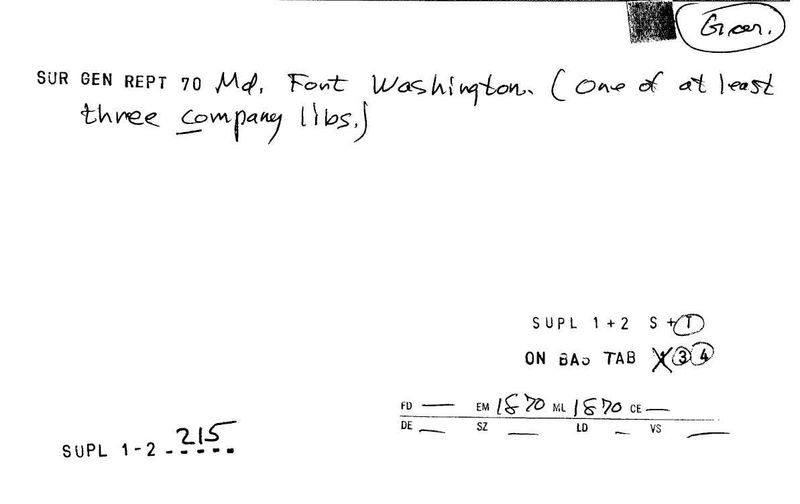 SUR GEN REPT 70 Md. Font Washington. (one of at least
three company libs.)
SUPL 1+2 S+T
ON BAS TAB X 3 4
FD — EM 1870 ML 1870 CE —
DE — SZ — LD — VS —
SUPL 1-2 215